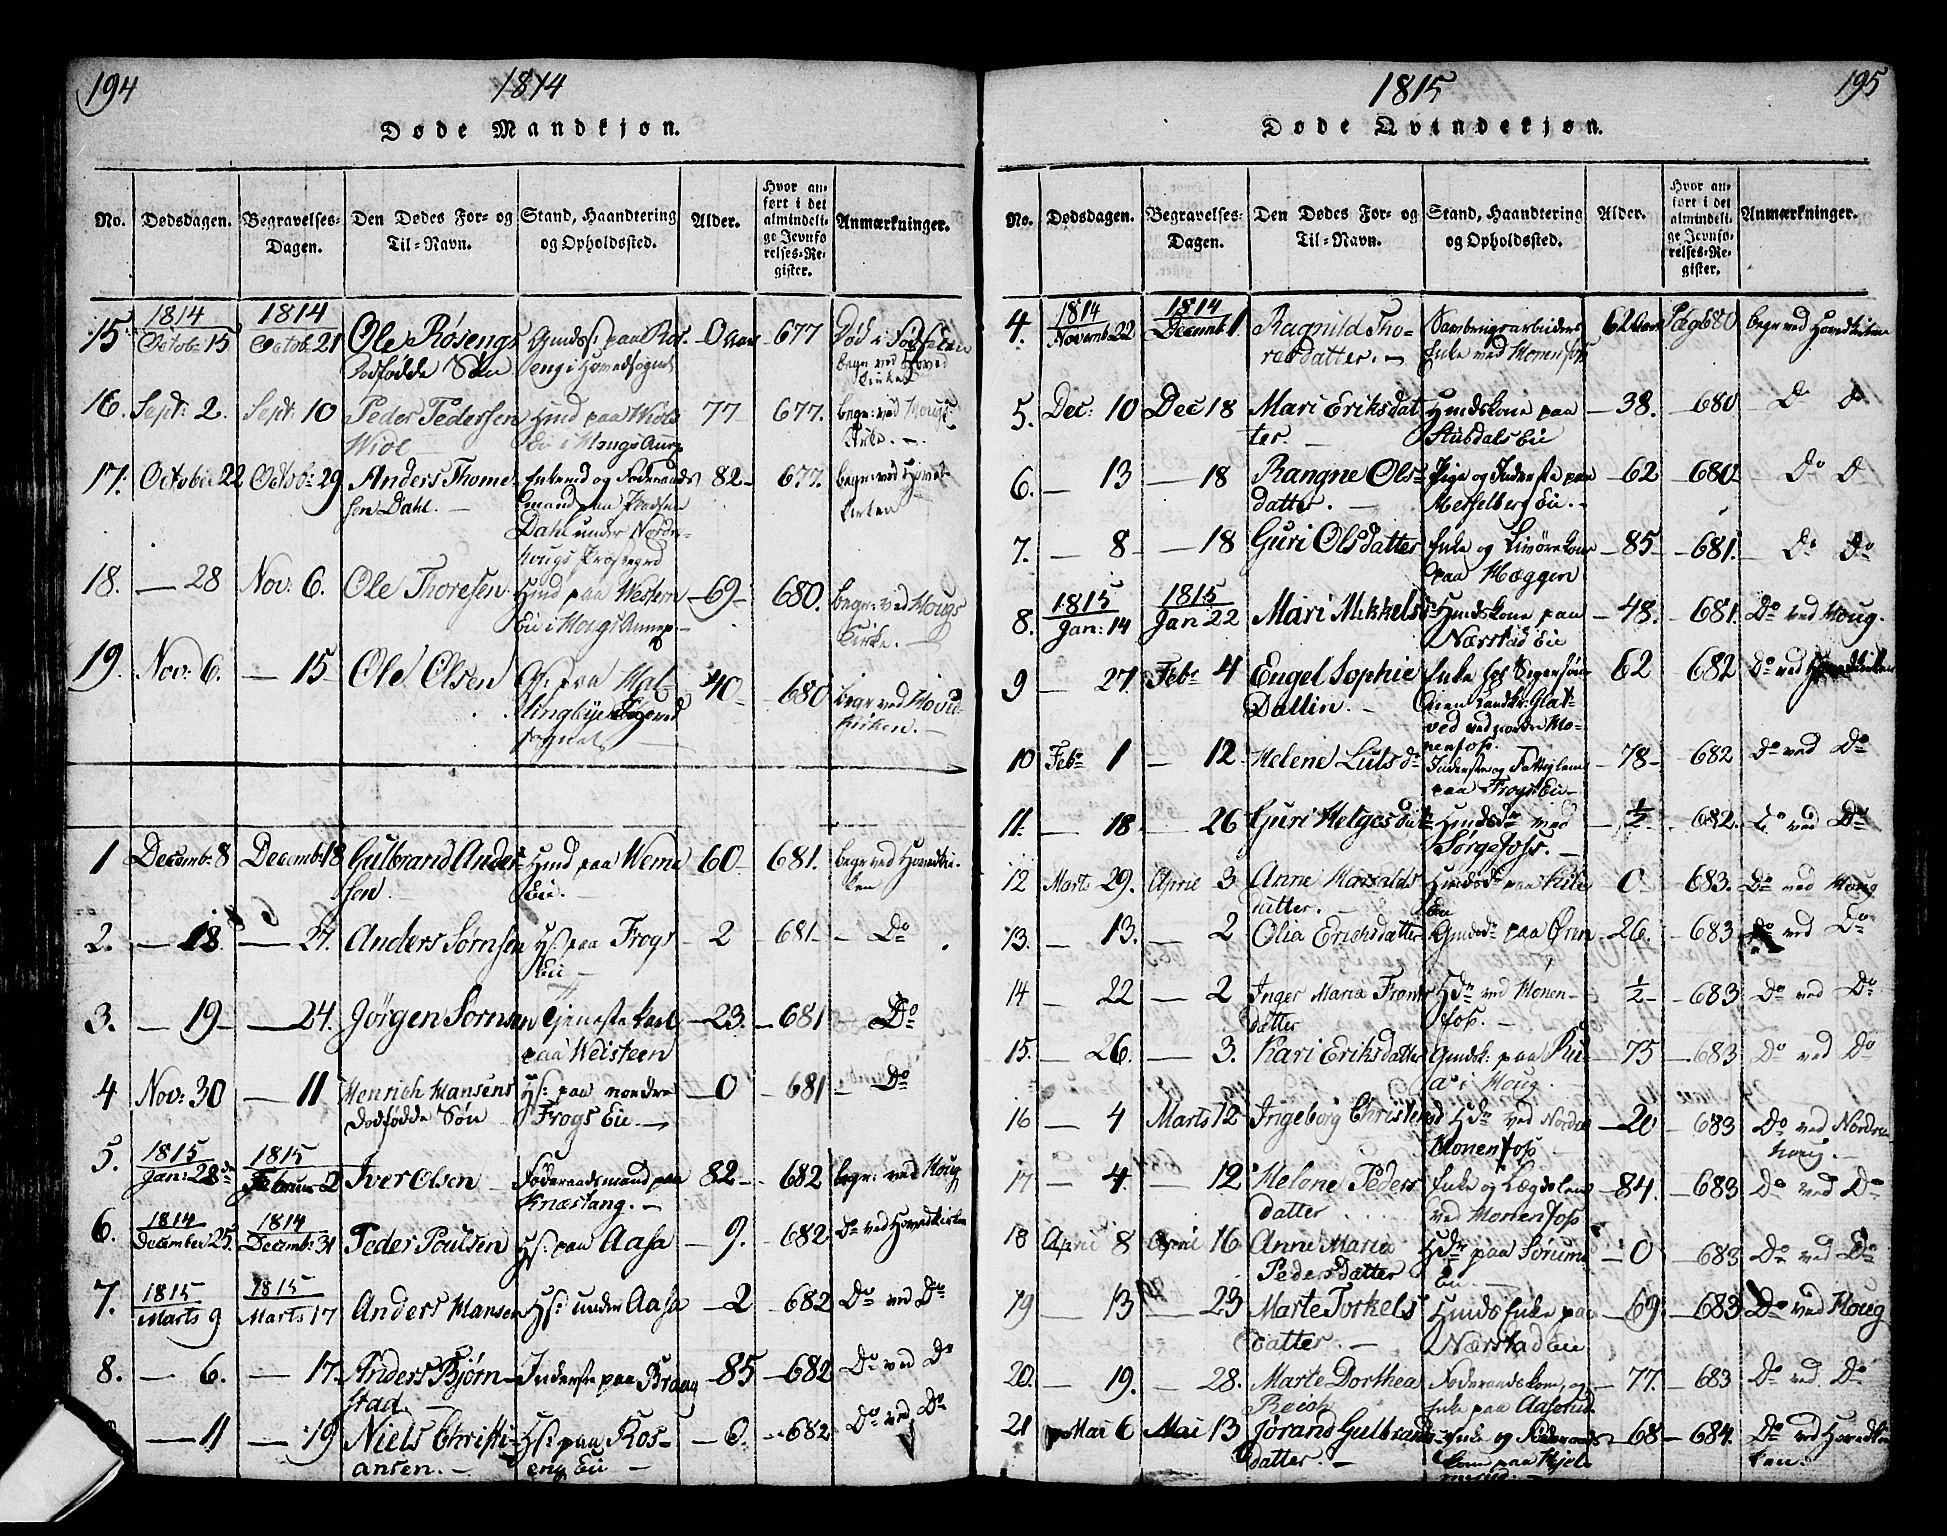 194
1814
Døde Mandkjøn.
No. Dødsdagen. Begravelses-Dagen. Den Dødes For- og Til-Navn. Stand, Haandtering og Opholdssted. Alder. Hvor anført i det almindelige Jevnførelses-Register. Anmærkninger.
15. 1814 Octob: 15 1814 Octob: 21 Ole Røseng dødfødde Søn 0 Aar 677 Død i Fødselen begr: ved Hoved Kirken
16. Sept: 2. Sept: 10 Peder Pedersen Wiol Huusmd paa Wiols Eie i Hougs Annex 77 677. begr: ved Hougs Kirke.
17. October 22 Octob: 29 Anders Thomessen Dahl. Enkemd og Føderaads mand paa Dahl under Nordre Hougs Præstegrd 82 677. begr: ved Hovedkirken
18. — 28 Nov: 6. Ole Thoresen Huusmd paa Western Eie i Hougs Annex. 69 680. begr: ved Hougs Kirke.
19. Nov: 6. — 15 Ole Olsen 40 680 begr: ved Hovedkirken.
1 Decemb: 8 Decemb: 18 Gulbrand Andersen Huusmd paa Weme Eie. 60 681. begr: ved Hovedkirken
2. — 18 — 27. Anders Sørnsen Hs: paa Frogs Eie 2 681 Do
3. — 19 — 24. Jørgen Sørnsen Tjenestekarl paa Weisteen 23. 681 Do
4 Nov: 30 — 11 Henrich Hansens dødfødde Søn Hs: paa nordre Frogs Eie. 0 681 Do
5. 1815 Jan: 28de 1815 Februar 2 Iver Olsen Føderaadsmand paa Knæstang. 82 682 begr: ved Houg
6. 1814 December 25. 1814 Decemb: 31 Peder Poulsen Hs: paa Aasa 9. 682 Do ved Hovedkirken
7. 1815 Marts 9 1815 Marts 17 Anders Hansen Hs: under Aasa 2 682 Do ved Do
8. — 6. — 17. Anders Bjørnstad. Inderste paa Braag 85 682 Do ved Do
— 11 — 19 Niels Christiansen. Hs: paa Roseng Eie 0. 682 Do ved Do
1815
195
Døde Qvindekjøn.
No. Dødsdagen. Begravelses-Dagen. Den Dødes For- og Til-Navn. Stand, Haandtering og Opholdssted. Alder. Hvor anført i det almindelige Jevnførelses-Register. Anmærkninger.
4. 1814 Novemb: 22 1814 Decemb: 1. Ragnild Thoresdatter. Enke ved Honenfos 62 Aar Pag: 680 begr: ved Hovedkirken
5. Dec: 10 Dec 18 Mari Eriksdatter. Huusmdskone paa Stubdals Eie 38. 680 Do Do
6. — 13 — 18 Rangne Olsdatter. Pige og Inderste paa Eie. 62 680 Do Do
7. — 8 — 18 Guri Olsdatter Enke og paa Hæggen 85 681. Do Do
8. 1815 Jan: 14 1815 Jan 22 Mari Mikkelsd: Huusmdskone paa Nærstad Eie 48. 681. Do ved Houg.
9 — 27. Febr 4 Engel Sophie Dallin. Enke ved nordre Honenfos. 62 682 Do ved Hovedkirken
10 Febr 1 — 12 Helene Lutsdr Inderste og Fattiglem paa Frogs Eie 78 682 Do ved Do
11. — 18. — 26 Guri Helgesdatr Huusmdsdr ved Sørgefoss. ½ 682. Do ved Do
12 Marts 29. April 3 Anne Haraldsdatter. Huusmdsdr paa Eie 0 683. Do ved Houg
13. — 13. — 2 Olia Ericksdatter Gmdsdr paa Øren 26. 683 Do ved Do
14 — 22 — 2 Inger Maria Fransdatter Hdr ved Honenfos. ½ 683 Do ved Do
15. — 26. — 3. Kari Eriksdatter Gmdsk: paa i Houg. 75 683 Do ved Do
16 — 4 Marts 12 Ingeborg Christensd Hdr ved Nordre Honenfos 20 683 Do ved Nordrehoug.
17 — 4. — 12 Helene Pedersdatter Enke og Lægdslem ved Honenfos 84. 683 Do ved Do
18 April 8 April 16 Anne Maria Pedersdatter Hdr paa Sørum Eie. 0 683 Do ved Do
19 — 13 — 23 Marte Torkelsdatter. Huusmds Enke paa Nærstad Eie 69 683 Do ved Houg
20. — 19. — 28. Marte Dorthea Føderaadskone, og Enke paa 77. 683 Do ved Do
21 Mai 6 Mai 13 Jørand Gulbrandsdatter. Enke og Føderaads kone paa 68 684. Do ved Hovedkirken.